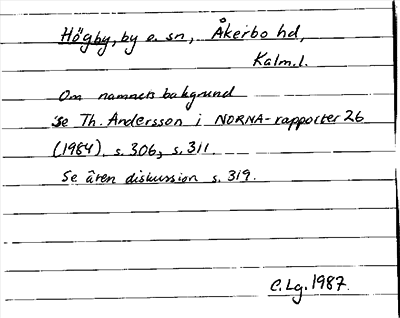 Högby, by o. sn, Åkerbo hd,
Kalm.l.
Om namnets bakgrund
se Th. Andersson i NORNA-rapporter 26
(1984) s. 306, s. 311
Se även diskussion s. 319.
C. Lg. 1987.